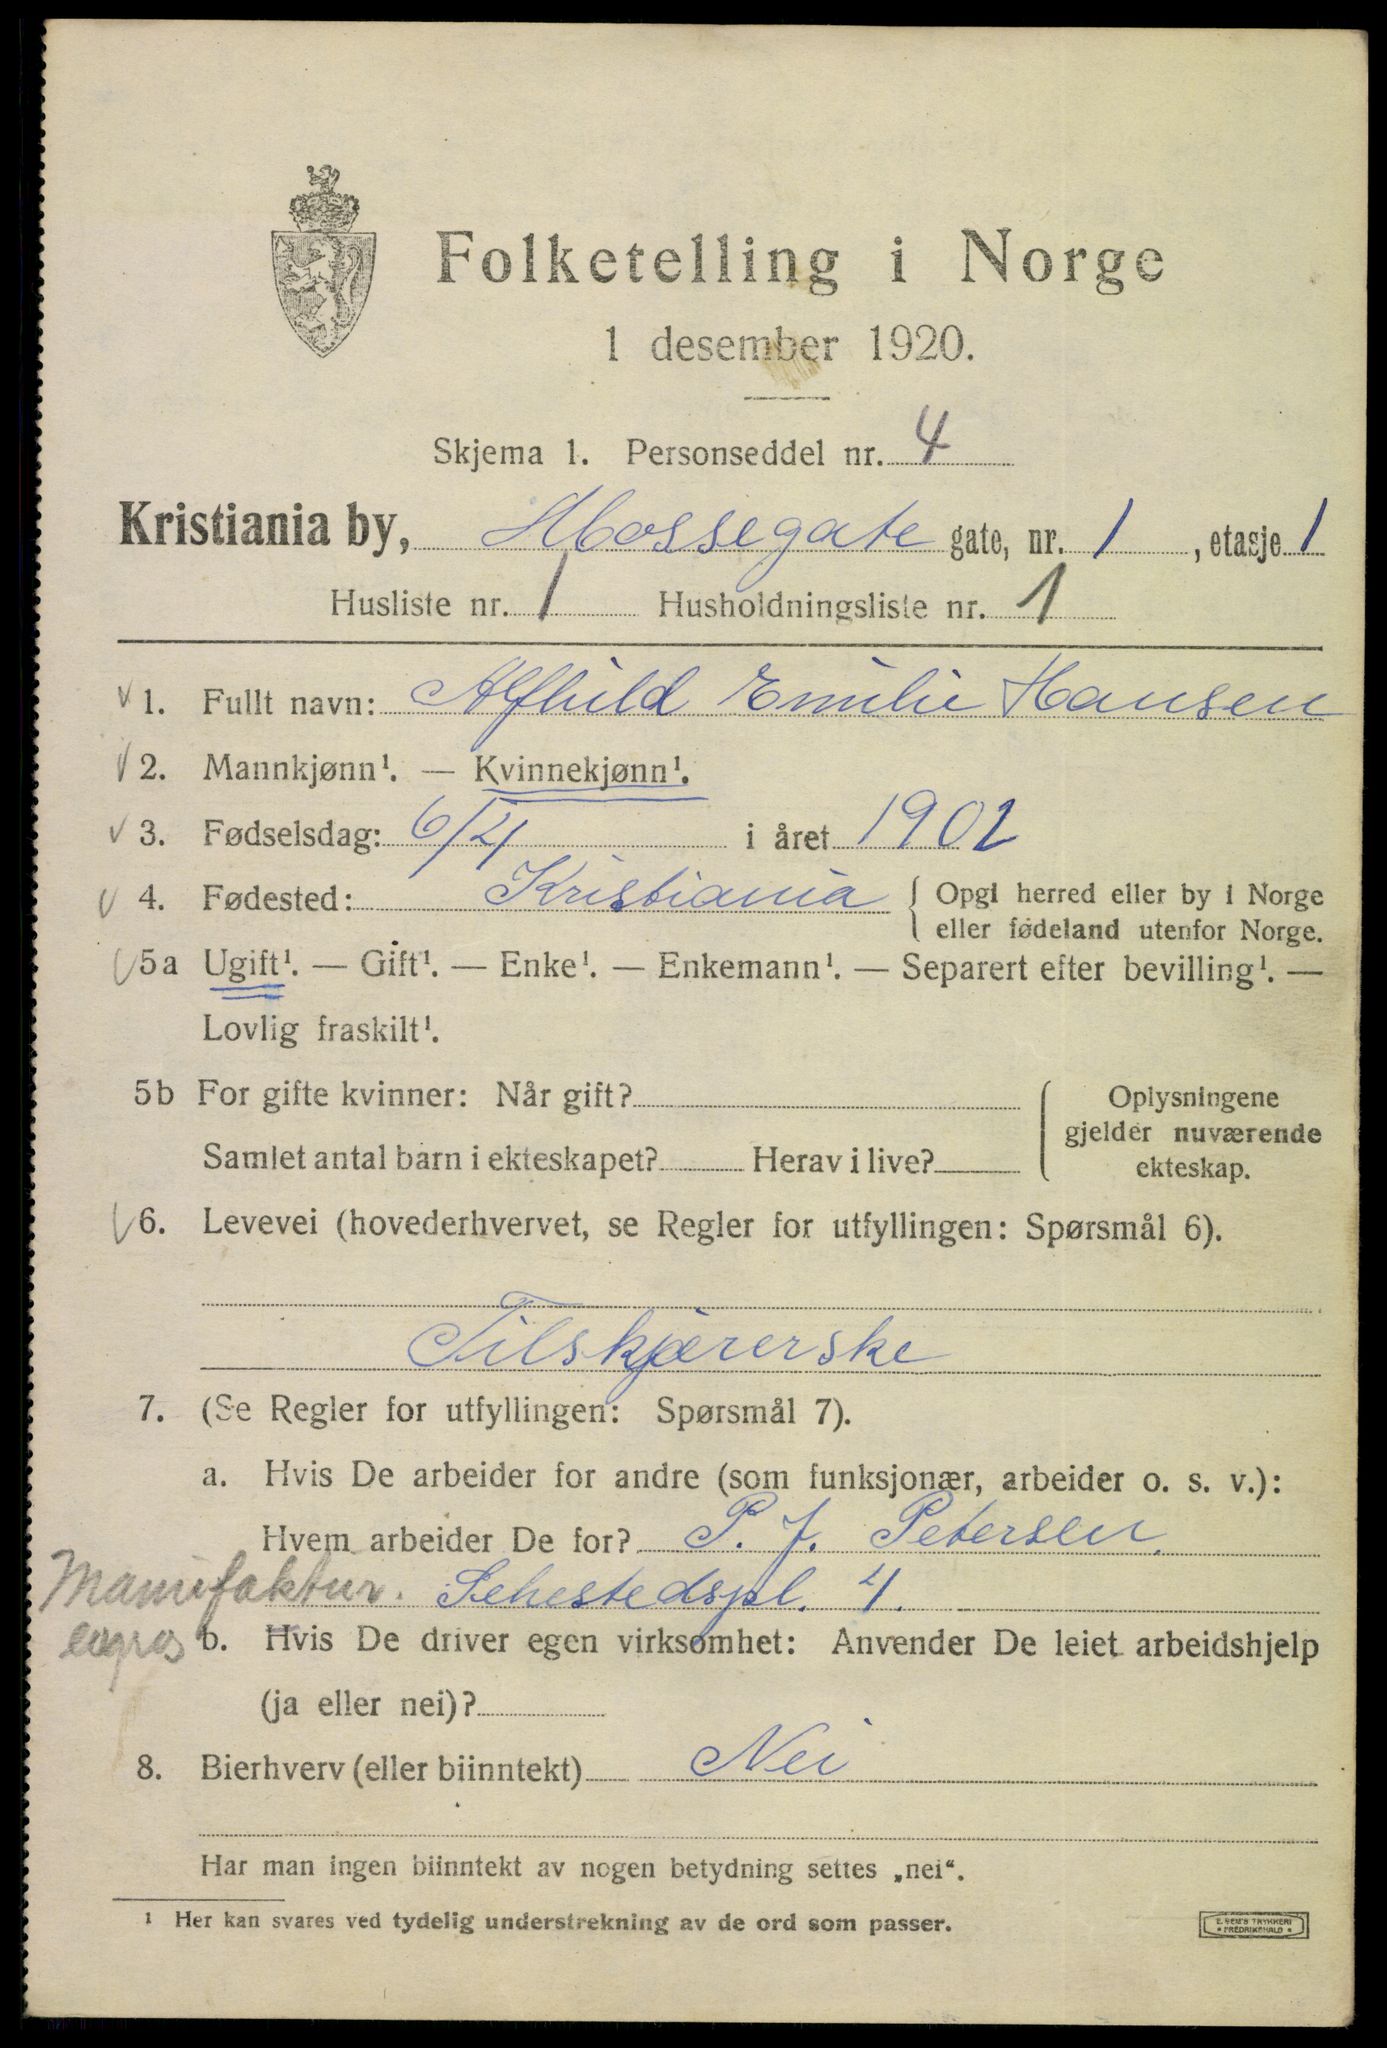 Folketelling i Norge
1 desember 1920.
Skjema 1. Personseddel nr. 4
Kristiania by, Mossegate gate, nr. 1, etasje 1
Husliste nr. 1 Husholdningsliste nr. 1
1. Fullt navn: Alfhild Emilie Hansen
2. Mannkjønn¹. — Kvinnekjønn¹.
3. Fødselsdag: 6/4 i året 1902
4. Fødested: Kristiania { Opgi herred eller by i Norge
eller fødeland utenfor Norge.
5a Ugift¹. — Gift¹. — Enke¹. — Enkemann¹. — Separert efter bevilling¹. —
Lovlig fraskilt¹.
5b For gifte kvinner: Når gift? { Oplysningene
gjelder nuværende
Samlet antal barn i ekteskapet? Herav i live? ekteskap.
6. Levevei (hovederhvervet, se Regler for utfyllingen: Spørsmål 6).
Tilskjærerske
7. (Se Regler for utfyllingen: Spørsmål 7).
a. Hvis De arbeider for andre (som funksjonær, arbeider o. s. v.):
Hvem arbeider De for? P. J. Petersen.
Manufaktur. Sehestedspl. 4.
engros b. Hvis De driver egen virksomhet: Anvender De leiet arbeidshjelp
(ja eller nei)?
8. Bierhverv (eller biinntekt) Nei
Har man ingen biinntekt av nogen betydning settes „nei“.
¹ Her kan svares ved tydelig understrekning av de ord som passer.
E. SEM'S TRYKKERI
* FREDRIKSHALD *